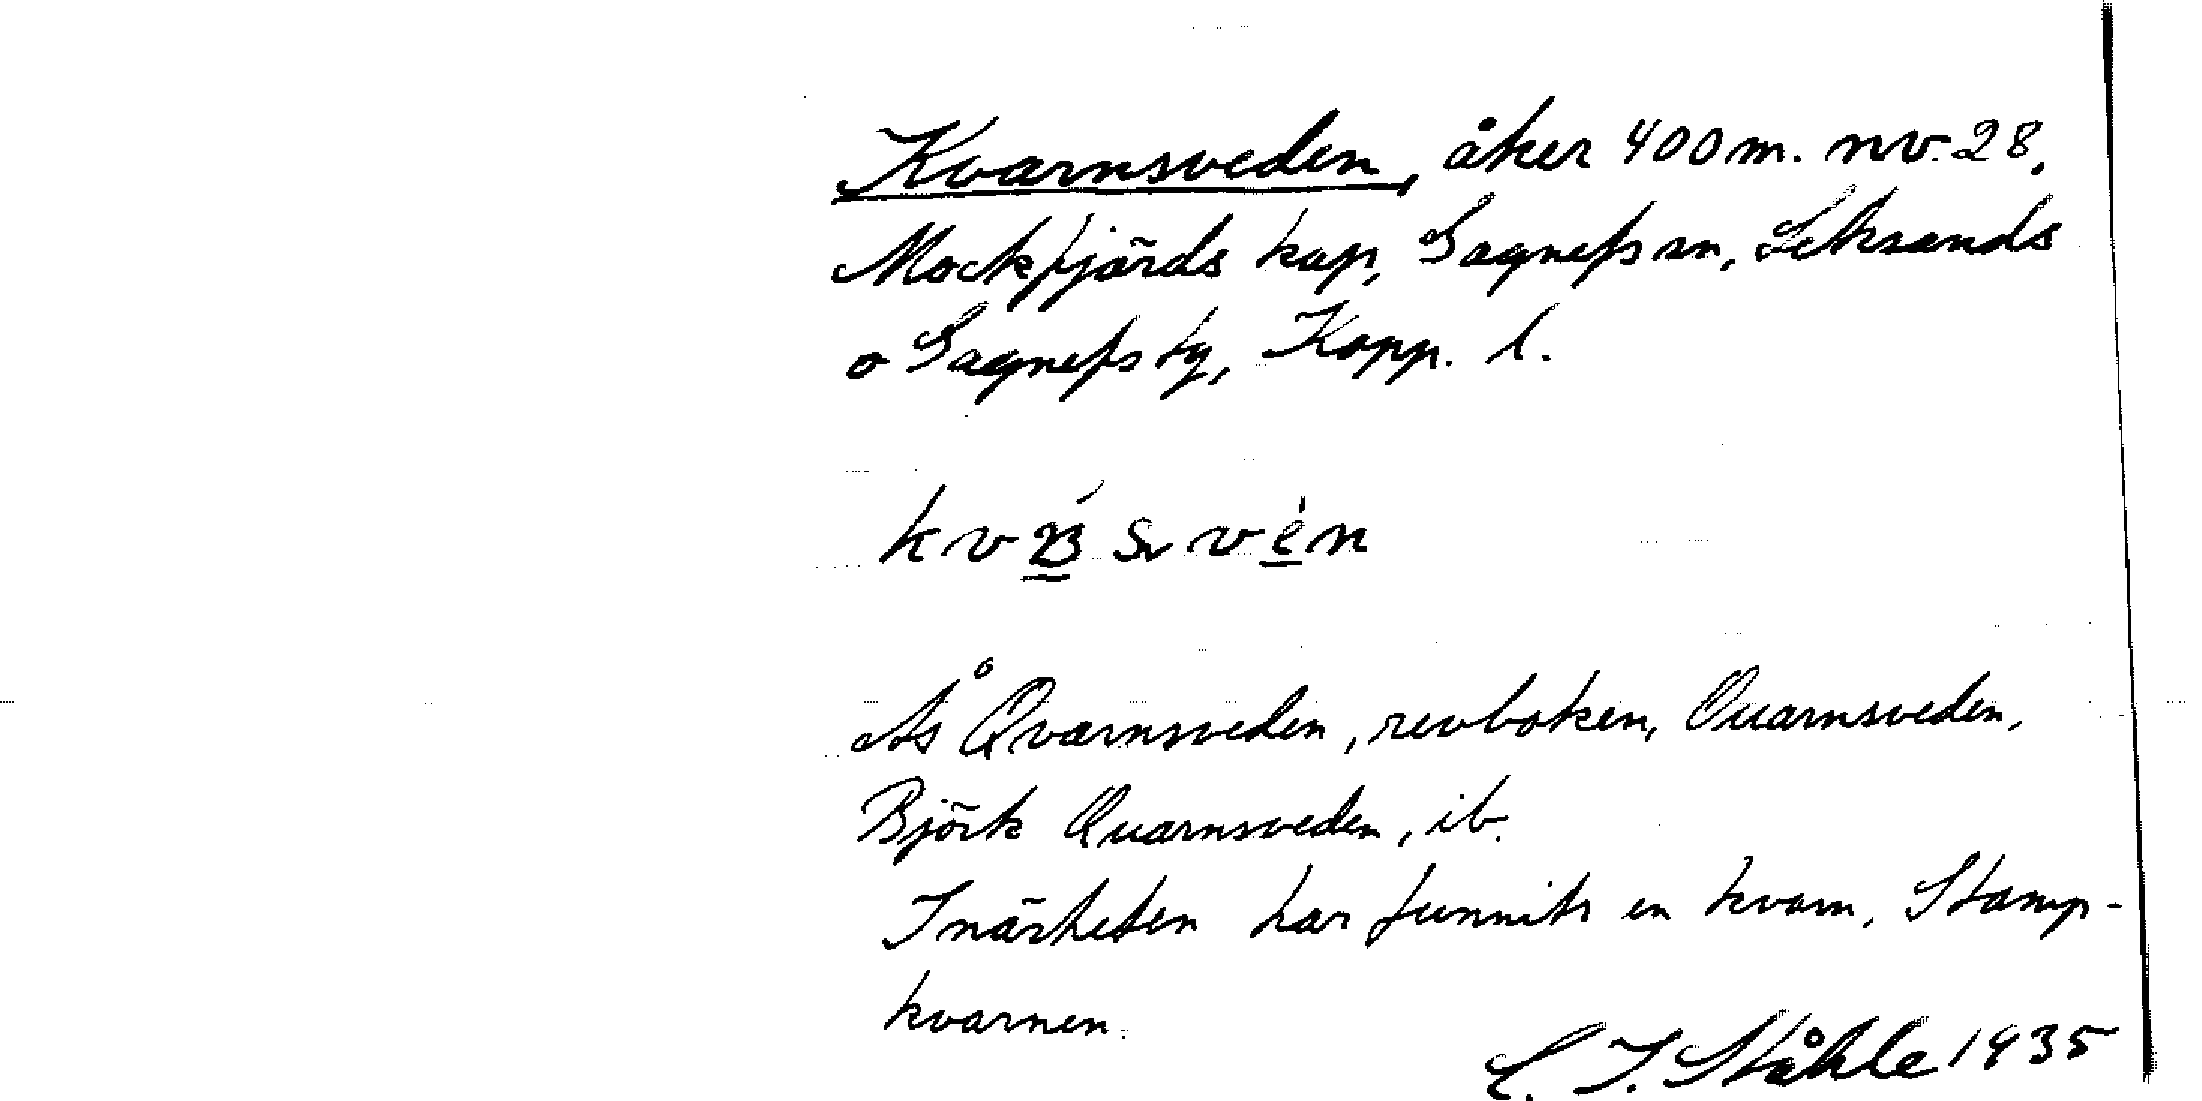 Kvarnsveden, åker 400 m. nv. 28,
Mockfjärds kap, Gagnefs sn, Leksands
o Gagnefs tg, Kopp. l.
Ås Qvarnsveden, revboken, Quarnsveden,
Björk Quarnsveden, ib.
I närheten har funnits en kvarn, Stamp-
kvarnen.
C. I. Ståhle 1935